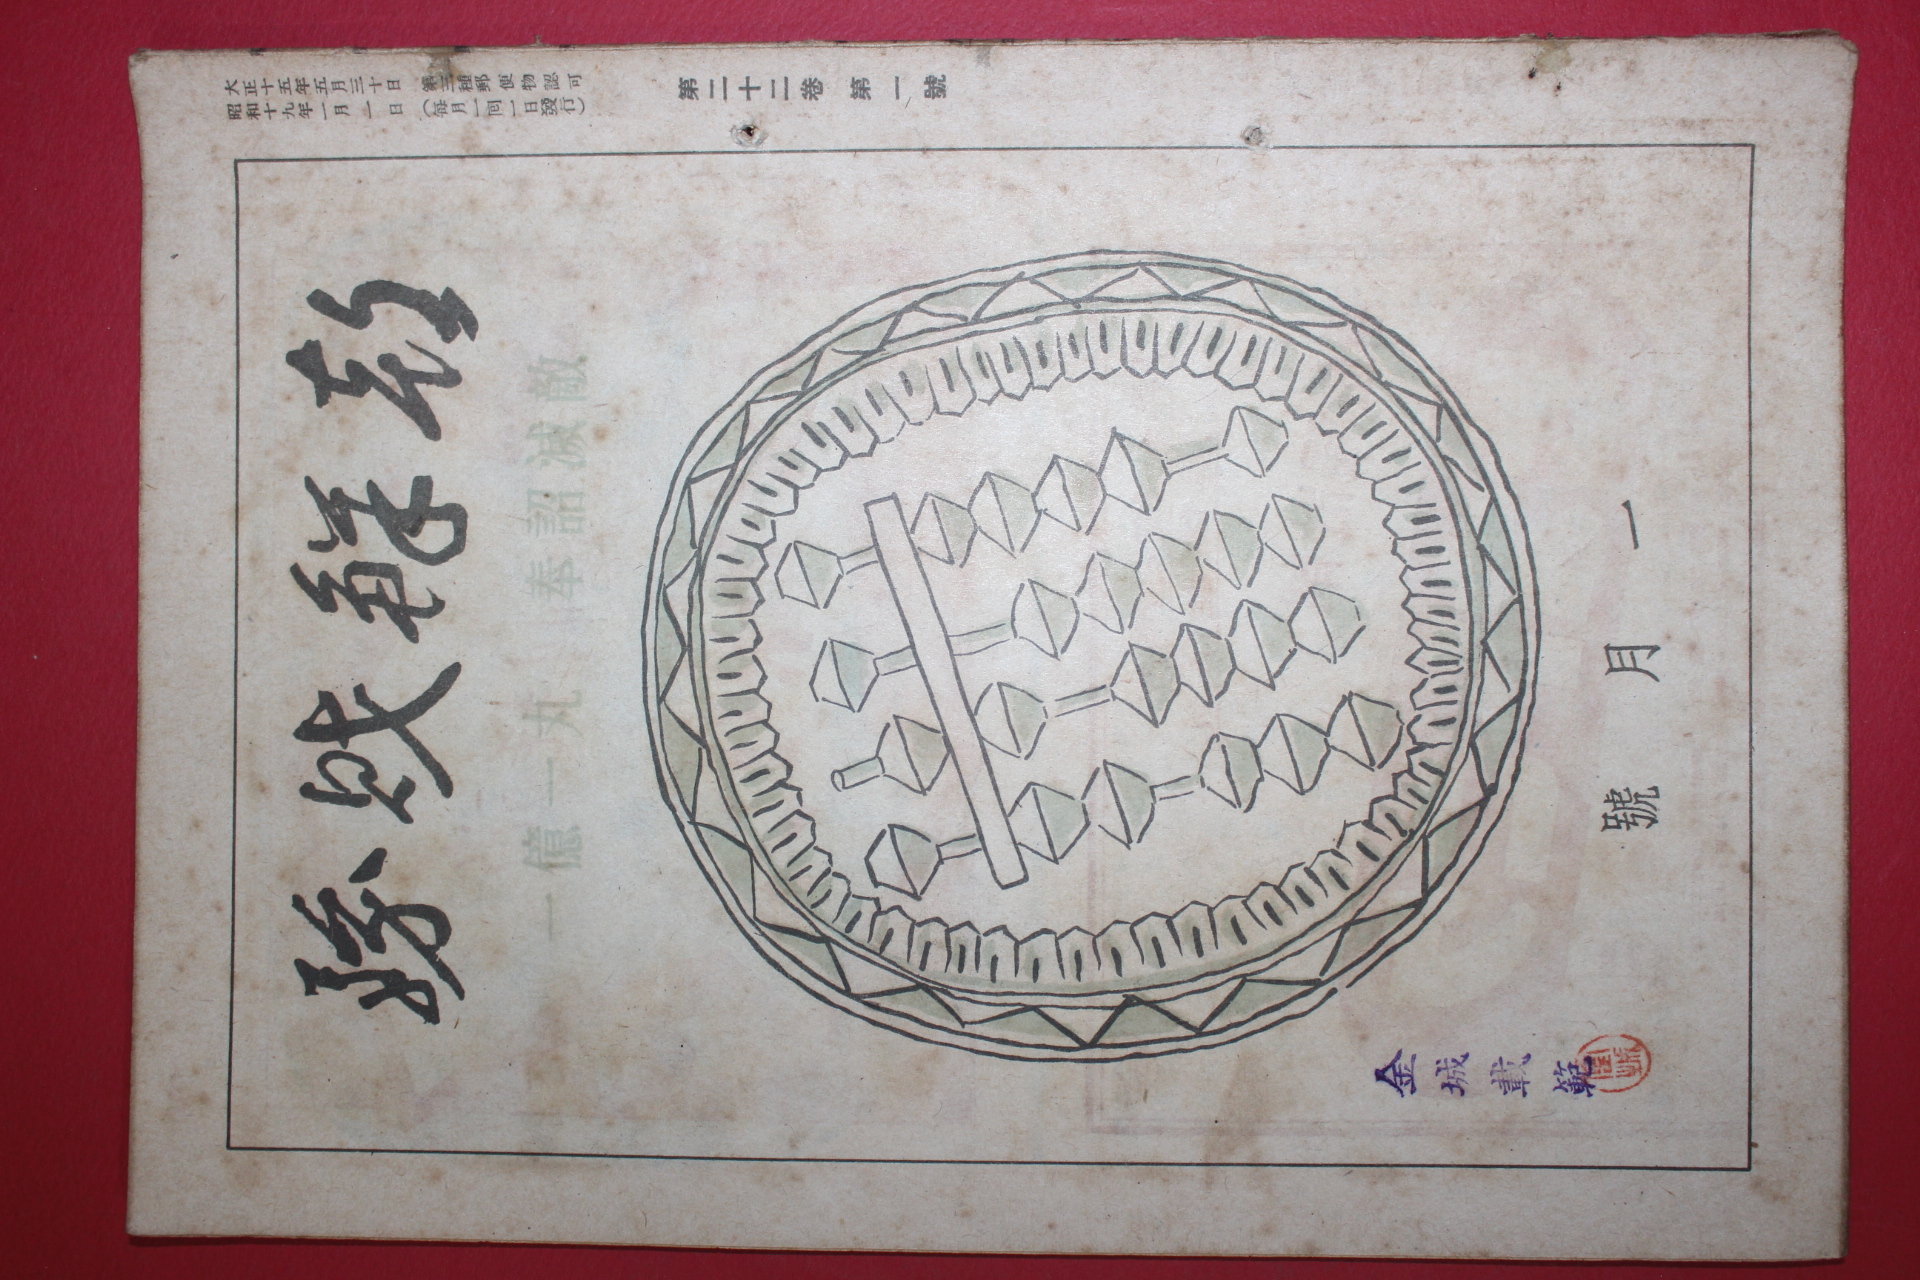 大正十五年五月三十日 第三種郵便物認可
昭和十九年一月一日 (每月一回一日發行)
第二十二卷 第一號
朝鮮財務
一億一丸 奉詔滅敵
一月號
金城載範